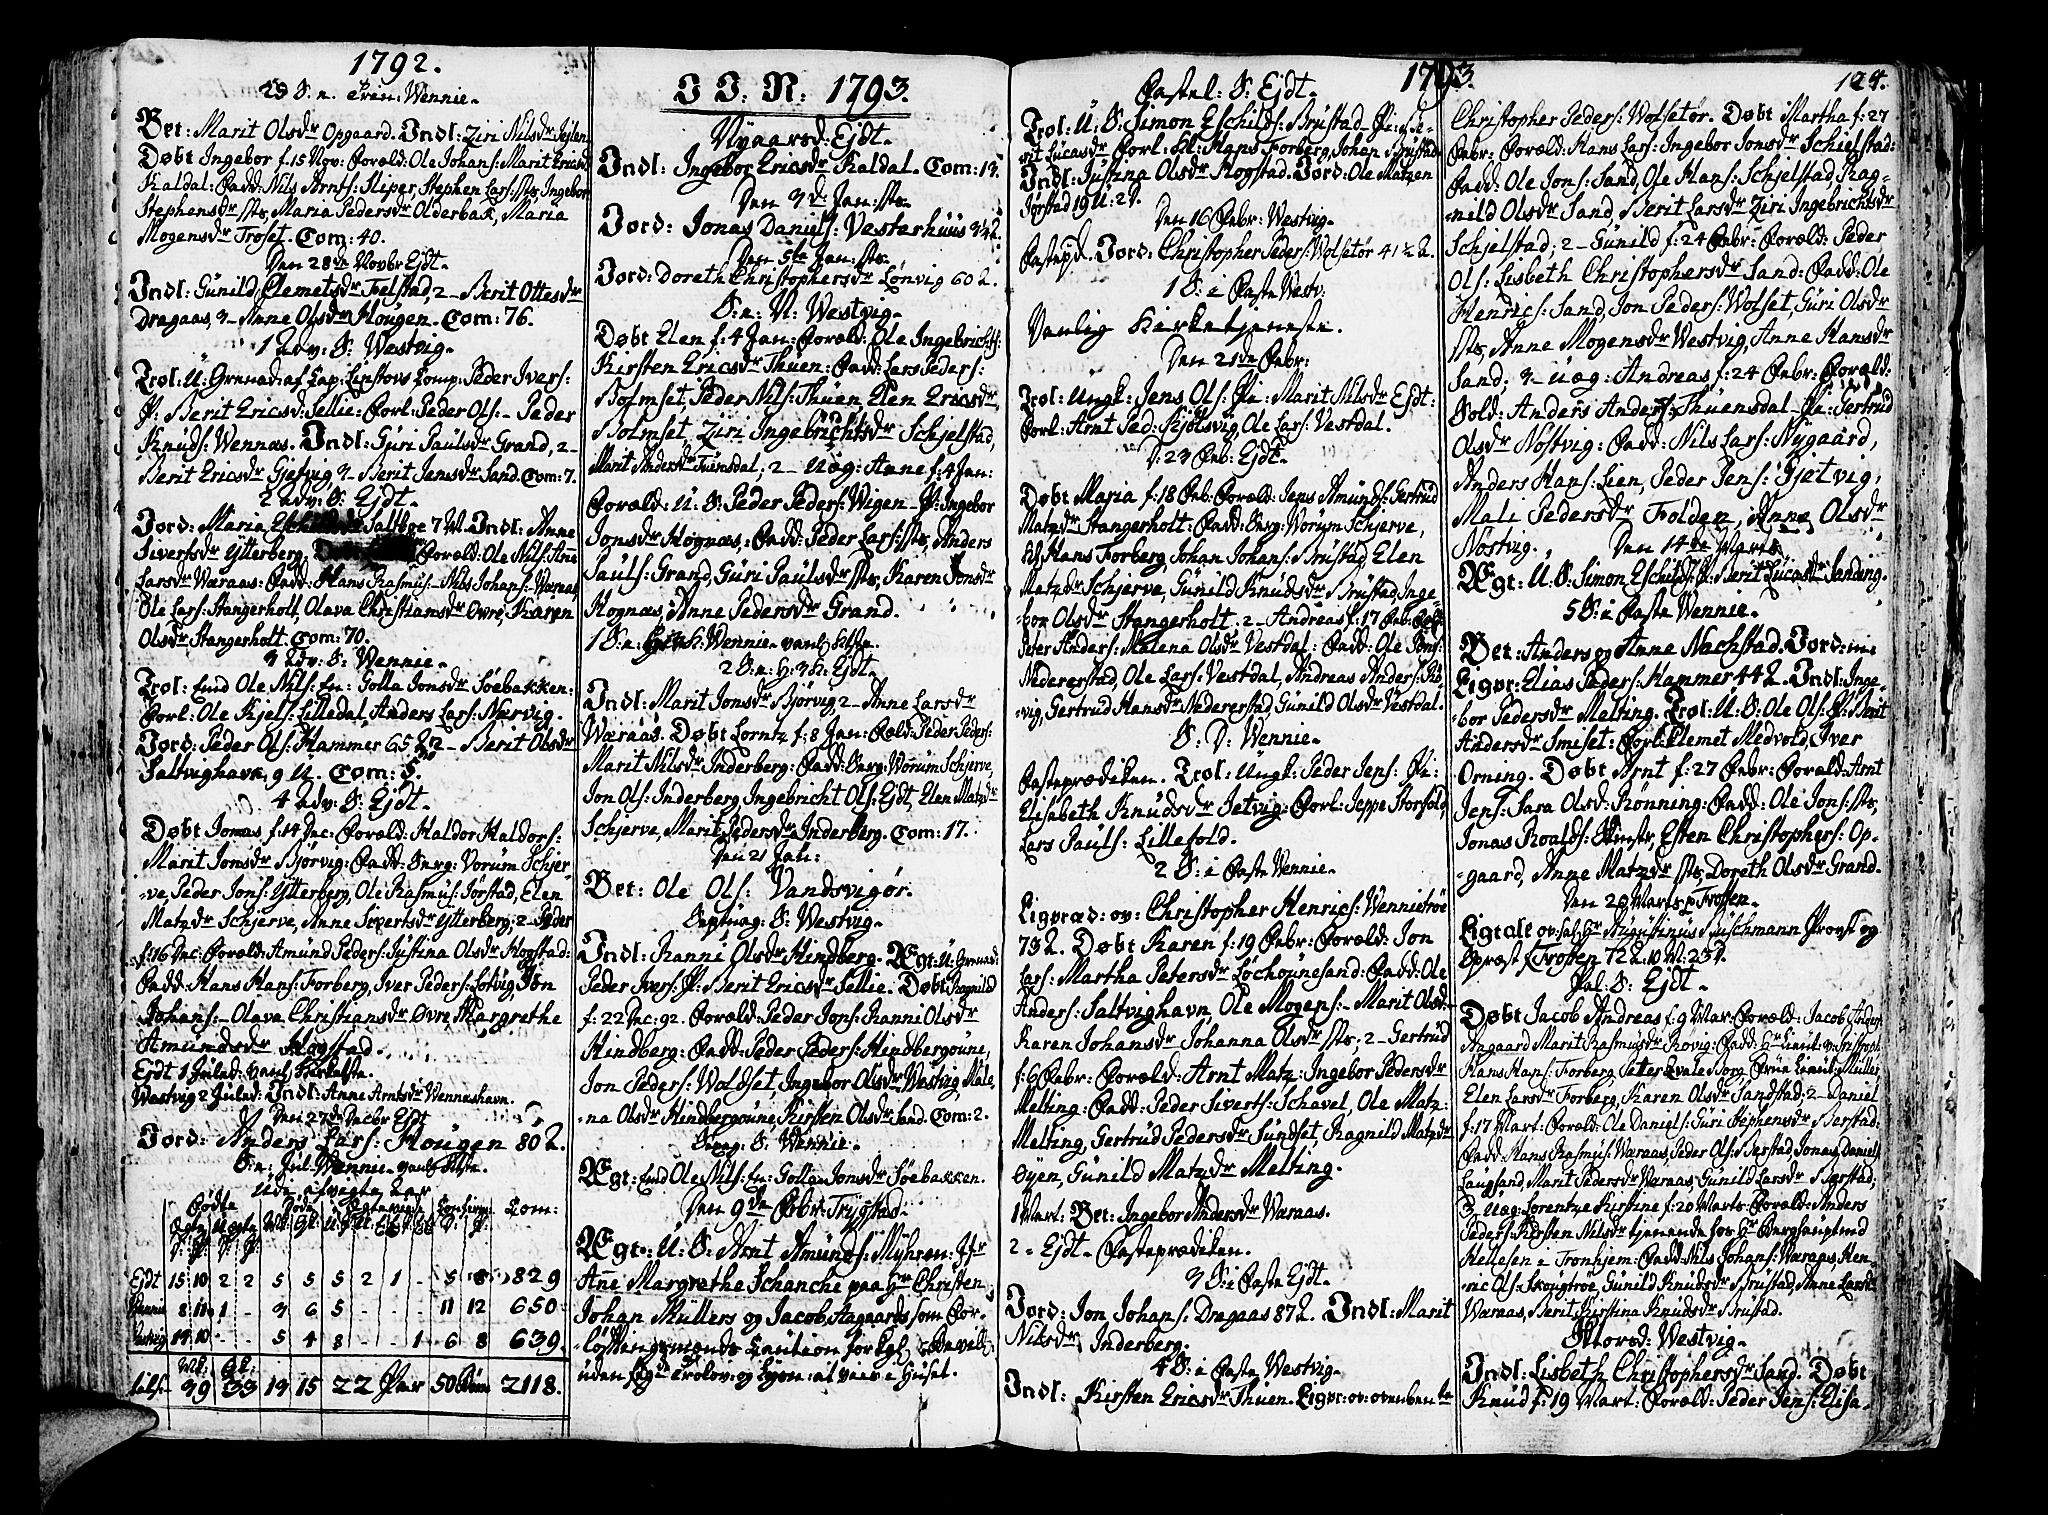 1792.
25 S. n. Trin: Wennie.
Bet: Marit Olsdr Opgaard. Indl: Ziri Nilsdr
Døbt Ingebor f. 15 Nov: Foræld: Ole Johans: Marit Ericsdr
Kaldal: Fadd: Nils Arnts: Sliper Stephen Lars: sts, Ingebor
Stephensdr sts, Maria Pedersdr Olderbak, Maria
Mogensdr Troset. Com: 40.
Den 28de Novbr Ejdt.
Indl: Gunild Clemetsdr Folstad, 2 - Berit Ottesdr
Dragaas, 3 - Anne Olsdr Hougen. Com: 76.
1 Adv: S: Westvig.
Trol: U: Grenad: af Cap: Linstovs Comp: Peder Ivers:
P: Berit Ericsd: Sellie: Forl: Peder Ols: - Peder
Knuds: Wennæs. Indl: Guri Paulsdr Grand, 2 -
Berit Ericsdr Gjetvig 3 - Berit Jensdr Sand. Com: 7.
2 Adv: S: Ejdt.
Jord: Maria Saltboe 7 M. Indl: Anne
Siversdr Ytterberg. Foræld: Ole Nils: Anne
Larsdr Wæraas: Fadd: Hans Rasmus - Nils Johans: Wæraas,
Ole Lars: Stangerholt, Olava Christiansdr Øvre, Karen
Olsdr Stangerholt. Com: 70.
3 Adv: S: Wennie.
Trol: Emd Ole Nils: En: Golla Jonsdr Søebakken:
Forl: Ole Kjels: Lilledal, Anders Lars: Nervig.
Jord: Peder Ols: Hammer 65 2 - Berit Olsdr
Saltvighavn, 9 U. Com: 5.
4 Adv: S: Ejdt.
Døbt Jonas f. 14 Dec: Foræld: Haldor Haldors:
Marit Jonsdr Bjørvig: Fadd: Serg: Vorum Schjer-
ve, Peder Jons: Ytterberg, Ole Rasmus: Jørstad, Elen
Matzdr Schjerve, Anne Sivertsdr Ytterberg; 2 - Peder
f. 16 Dec: Foræld: Amund Peders: Justina Olsdr Hogstad:
Fadd: Hans Hans: Forberg, Iver Peders: Lotvig, Jon
Johans: - Olava Christiansdr Øvre, Margrethe
Amundsdr Hogstad.
Ejdt 1 Juled: vanl: Kirketste.
Westvig 2 Juled: Indl: Anne Arntsdr Wenneshavn.
Den 27de Decbr Ejdt
Jord: Anders Lars: Hougen 80 2.
S. n: Jul: Wennie. vanl: Kirketste.
Udi afvigte Aar
Fødte Døde Egteviede Confirm: Com:
Ejdt 15 10 2 2 5 5 5 2 1 - 5 8 829
Wennie 8 11 1 - 3 6 5 - - - 11 12 650
Westvig 14 10 - - 5 4 8 - - 1 6 8 639.
Tils: 39 33 13 15 22 Par 50 Børn 2118.
J. J. N: 1793.
Nyaarsd: Ejdt.
Indl: Ingebor Ericsdr Kaldal. Com: 13.
Den 3de Jan: sts.
Jord: Jonas Daniels: Vesterhuus 34 2.
Den 5te Jan: sts.
Jord: Doreth Christophersdr Lonvig 60 2.
S. n: N: Westvig.
Døbt Elen f: 4 Jan: Foræld: Ole Ingebrichts:
Kirsten Ericsdr Thuen: Fadd: Lars Peders:
Holmset, Peder Nils: Thuen Elen Ericsdr
Holmset, Ziri Ingebrichtsdr Schjelstad,
Marit Andersdr Tuensdal; 2 - Uæg: Anne f: 4 Jan:
Foræld: U: S: Peder Peders: Wigen P: Ingebor
Jonsdr Hognæs,: Fadd: Peder Lars: sts, Anders
Pauls: Grand, Guri Paulsdr sts, Karen Jonsdr
Hognæs, Anne Pedersdr Grand.
1 S. n: H: 3 K: Wennie. vanl: Kitste.
2 S. n: H: 3 K: Ejdt.
Indl: Marit Jonsdr Bjørvig 2 - Anne Larsdr
Wæraas. Døbt Lorntz f: 8 Jan: Foræld: Peder Peders:
Marit Nilsdr Inderberg: Fadd: Serg: Worum Schjerve,
Jon Ols: Inderberg, Ingebricht Ols: Ejdt, Elen Matzdr
Schjerve, Marit Pedersdr Inderberg. Com: 17.
Den 21 Jan:
Bet: Ole Ols: Vandsvigør.
Septuag: S: Westvig.
Indl: Ranni Olsdr Hindberg. Ægt: U: Grenad:
Peder Ivers: P: Berit Ericsdr Sellie. Døbt: Ragnild
f: 22 Dec: 92. Foræld: Peder Jons: Ranni Olsdr
Hindberg: Fadd: Peder Peders: Hindbergoune,
Jon Peders: Woldset, Ingebor Olsdr Westvig, Male-
na Olsdr Hindbergoune, Kirsten Olsdr Sand. Com: 2.
Sexag: S: Wennie.
Ægt: Emd Ole Nils: En: Golla Jonsdr Søebakken.
Den 9de Febr: Trygstad.
Ægt: U: S: Arnt Amunds: Myhren: Jfr
Anne Margretha Schanche paa Hr Christen
Johan Müllers og Jacob Aagaards, som For-
lovlingsmænds Caution for Kgl: Bevill:
uden Trolov: og Lysn: at vies i Huset.
1793. 124.
Fastel: S: Ejdt.
Trol: U: S: Simon Eschilds: Brustad - Pi: Be-
rit Lucasdr Forl: Kl: Hans Forberg, Johan Brustad
Indl: Justina Olsdr Hogstad. Jord: Ole Matzen
Jørstad 19 U: 2 D.
Den 16 Febr: Westvig.
Fastepd. Jord: Christopher Peders: Wolsetør 41½ 2.
1 S: i Faste Westv:
Vanlig Kirketjeneste.
Den 21de Febr:
Trol: Ungk: Jens Ols: Pi: Marit Nilsdr Ejdt:
Forl: Arnt Ped: Kjølsvig, Ole Lars: Vestdal.
D: 23 Feb: Ejdt.
Døbt Maria f: 18 Feb: Foræld: Jens Amunds: Gertrud
Matzdr Stangerholt: Fadd: Serg: Worum Schjerve,
Kl: Hans Forberg, Johan Johans: Brustad, Elen
Matzdr Schjerve, Gunild Knudsdr Brustad, Inge-
bor Olsdr Stangerholt. 2 - Andreas f: 17 Feb: Foræld:
Peter Anders: Malena Olsdr Vestdal: Fadd: Ole Jons:
Nedererstad, Ole Lars: Vestdal, Andreas Anders: Ro-
vig, Gertrud Hansdr Nedererstad Gunild Olsdr Vestdal.
S: D: Wennie.
Fasteprædiken. Trol: Ungk: Peder Jens: Pi:
Elisabeth Knudsdr Jetvig: Forl: Jeppe Storfold,
Lars Pauls: Lillefold.
2 S: i Faste Wennie.
Ligpræd: ov: Christopher Henrics: Wennietrøe
73 2. Døbt Karen f: 19 Febr: Foræld: Jon
Lars: Martha Petersdr Lochounesand: Fadd: Ole
Anders: Saltvighavn, Ole Mogens: - Marit Olsd:
Karen Johansdr Johanna Olsdr sts; 2 - Gertrud
f: 6 Febr: Foræld: Arnt Matz: Ingebor Pedersdr
Melting: Fadd: Peder Siverts: Schavel, Ole Matz:
Melting, Gertrud Pedersdr Sundset, Ragnild Matzdr
Øyen, Gunild Matzdr Melting.
1 Mart: Bet: Ingebor Andersdr Wæraas.
2 - Ejdt - Fasteprædiken.
3 S: i Faste Ejdt.
Jord: Jon Johans: Dragaas 87 2. Indl: Marit
Nilsdr Inderberg.
4 S: i Faste Westvig.
Indl: Kirsten Ericsdr Thuen. Ligpr: ov: ovenben:te
Christopher Peders: Wolsetør. Døbt Martha f: 27
Febr: Foræld: Hans Lars: Ingebor Jonsdr Schielstad:
Fadd: Ole Jons: Sand, Ole Hans: Schjelstad, Rag-
nild Olsdr Sand, Berit Larsdr Ziri Ingebrichtsdr
Schjelstad; 2 - Gunild f: 24 Febr: Foræld: Peder
Ols: Lisbeth Christophersdr Sand: Fadd: Ole
Henrics: Sand, Jon Peders: Wolset, Guri Olsdr
sts, Anne Mogensdr Westvig, Anne Hansdr
Sand; 3 - Uæg: Andreas f: 24 Febr: Foræld:
Sold: Anders Anders: Thuensdal - Pi: Gertrud
Olsdr Nostvig: Fadd: Nils Lars: Nygaard,
Anders Hans: Lien, Peder Jens: Gjetvig,
Mali Pedersdr Folden, Anne Olsdr
Nostvig. Den 14de Marts
Ægt: U: S: Simon Eschilds: P: Berit Lucasdr Sanding.
5 S: i Faste Wennie.
Bet: Anders og Anne Nachstad. Jord: m:
Ligpr: Elias Peders: Hammer 44 2. Indl: Inge-
bor Pedersdr Melting. Trol: U: S: Ole Ols: P: Berit
Andersdr Smiset: Forl: Clemet Medvold, Iver
Orning. Døbt Arnt f: 27 Febr: Foræld: Arnt
Jens: Sara Olsd: Rønning: Fadd: Ole Jons: sts,
Jonas Roalds: Esten Christophers: Op-
gaard, Anne Matzdr sts, Doreth Olsdr Grand.
Den 20 Marts p: Frosten.
Ligtale ov: sal: Hr Augustinus Buschmann Provst og
Spræst t: Frosten 72 2. 10 M: 23 D.
Pal: S: Ejdt.
Døbt Jacob Andreas f: 9 Mar: Foræld: Jacob Anders:
Aagaard Marit Rasmusdr Rovig: Fadd: Hr Lieut:
Hans Hans: Forberg, Peter Qvale Borg Frue Lieut: Müller,
Elen Larsdr Forberg, Karen Olsdr Sandstad; 2 - Daniel
f: 17 Mart: Foræld: Ole Daniels: Guri Stephensdr Berstad:
Fadd: Hans Rasmus: Wæraas, Peder Ols: Berstad, Jonas Daniels:
Laugsand, Marit Pedersdr Wæraas, Gunild Larsdr Berstad;
3, Uæg: Lorentze Kirstine f: 20 Marts: Foræld: Anders
Peders: Kirsten Nilsdr tjenende hos Hr Berghauptmd
Hellesen i Tronhjem: Fadd: Nils Johans: Wæraas, Hen-
ric Ols: Skougtrøe, Gunild Knudsdr Brustad, Anne Larsdr
Wæraas, Berit Kirstina Knudsdr Brustad.
Skiersd: Westvig.
Indl: Lisbeth Christophersdr Sand. Døbt
Knud f: 19 Mart: Foræld: Peder Jens: Elisa-